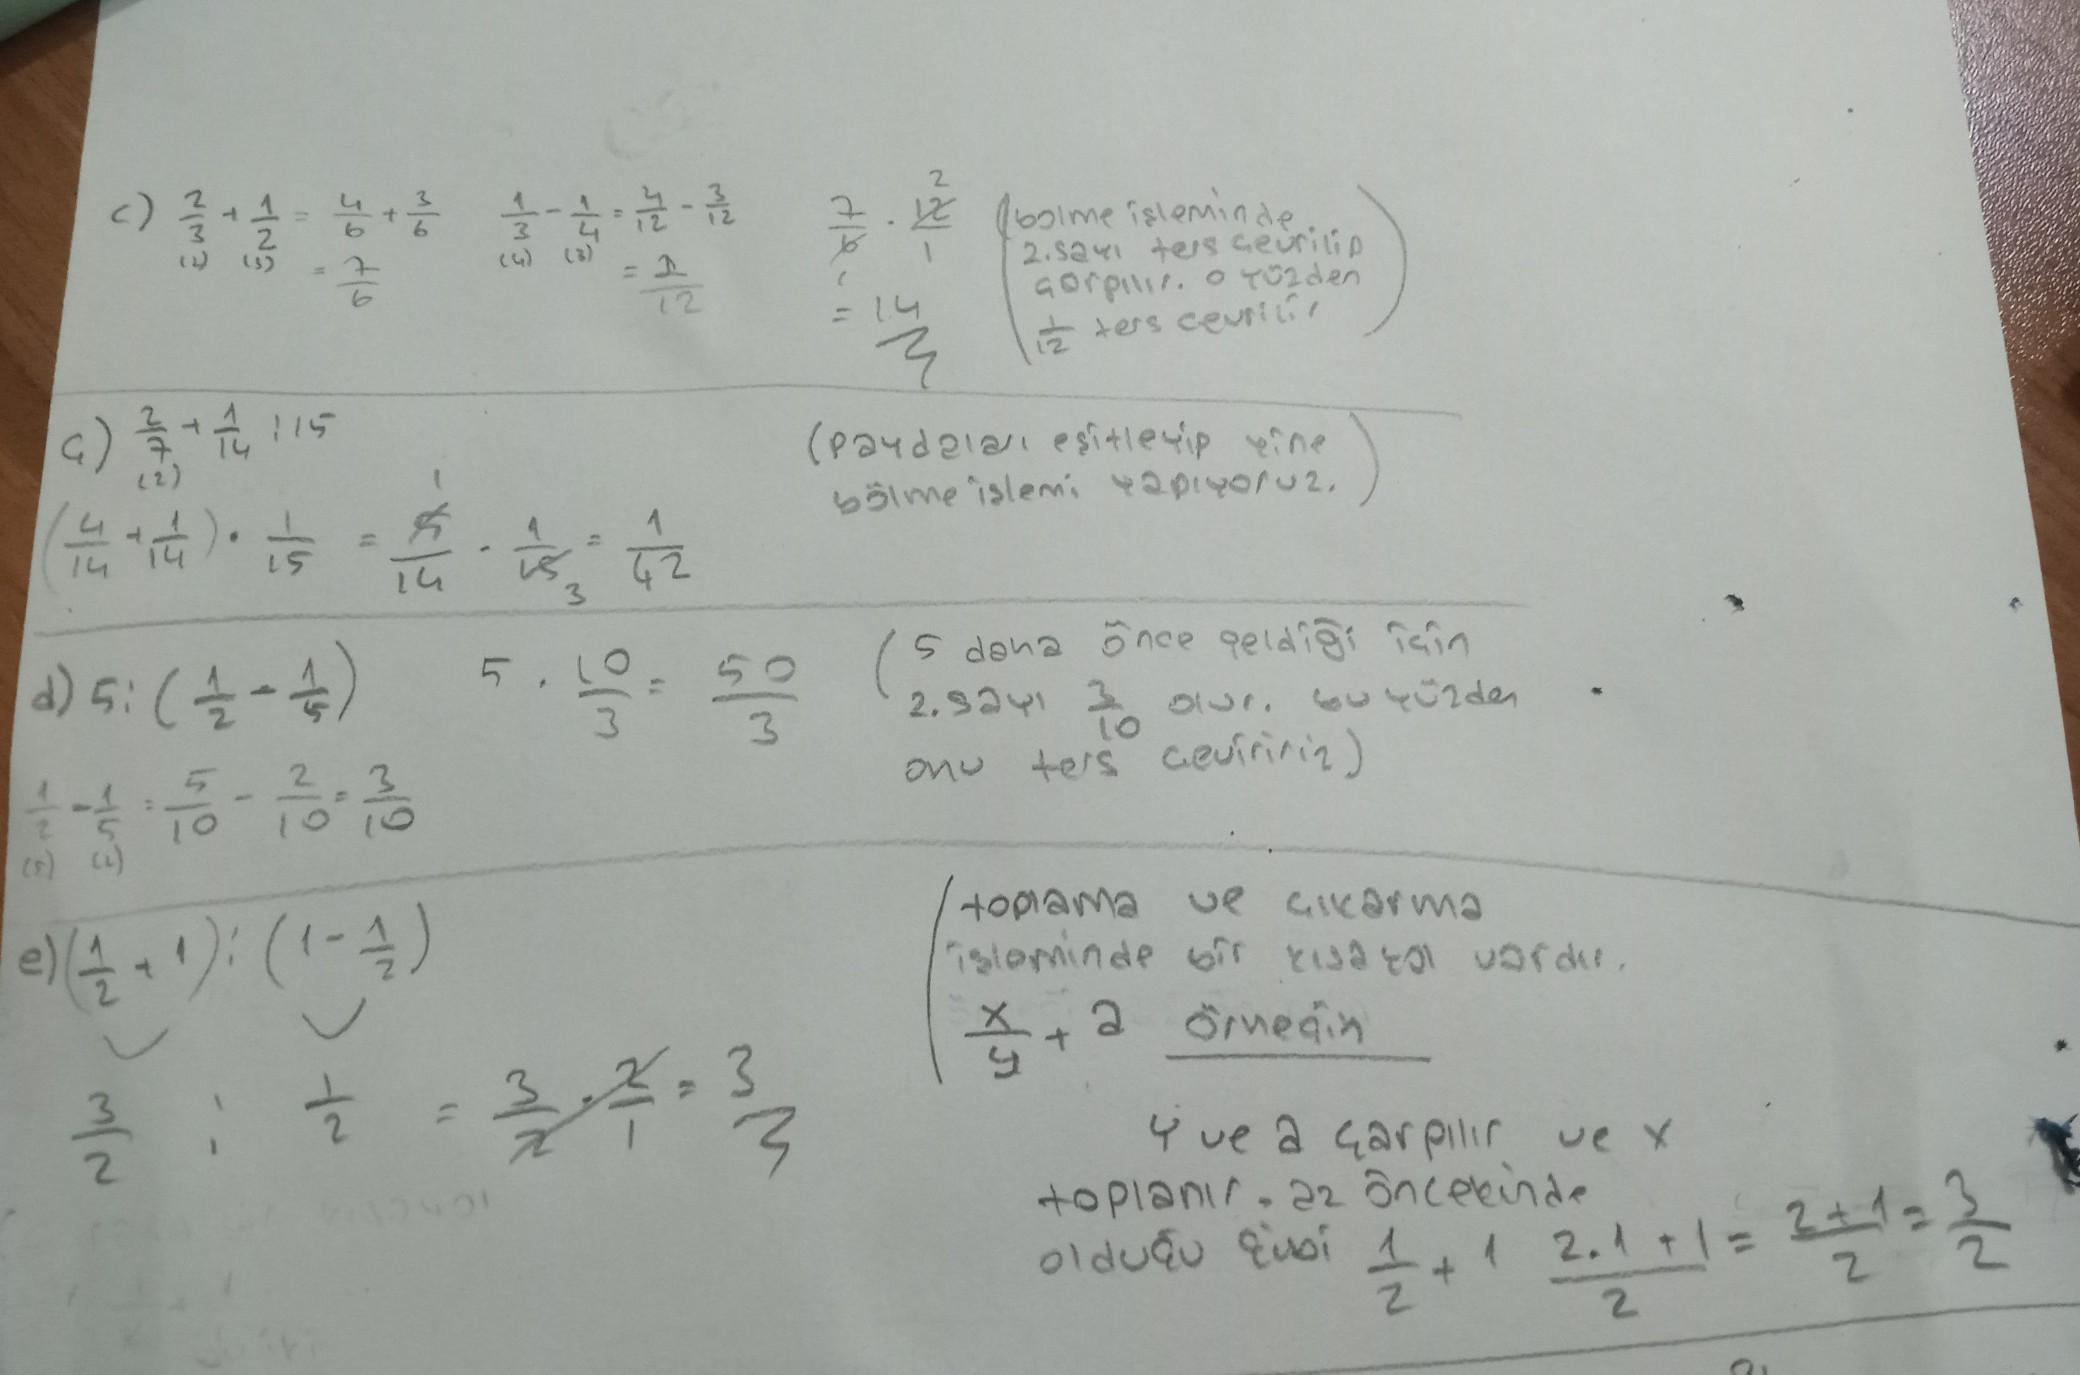 c) 2/3 + 1/2 = 4/6 + 3/6
(2) (3)
= 7/6
1/3 - 1/4 = 4/12 - 3/12
(4) (3)
= 1/12
7/6 . 12/1 2
1
= 14
(bölme işleminde
2.sayı ters çevrilip
çarpılır. o yüzden
1/12 ters çevrilir)
ç) 2/7 + 1/14 : 15
(2)
(4/14 + 1/14) . 1/15 = 5/14 . 1/15 = 1/42
1
3
(paydaları eşitleyip yine
bölme işlemi yapıyoruz.)
d) 5 : (1/2 - 1/5)
5 . 10/3 = 50/3
1/2 - 1/5 = 5/10 - 2/10 = 3/10
(5) (2)
(5 daha önce geldiği için
2.sayı 3/10 olur. bu yüzden
onu ters çeviririz)
e) (1/2 + 1) : (1 - 1/2)
3/2 : 1/2 = 3/2 . 2/1 = 3
(toplama ve çıkarma
işleminde bir kısa yol vardır.
x/y + a örneğin
y ve a çarpılır ve x
toplanır. az öncekinde
olduğu gibi 1/2 + 1 2.1+1/2 = 2+1/2 = 3/2